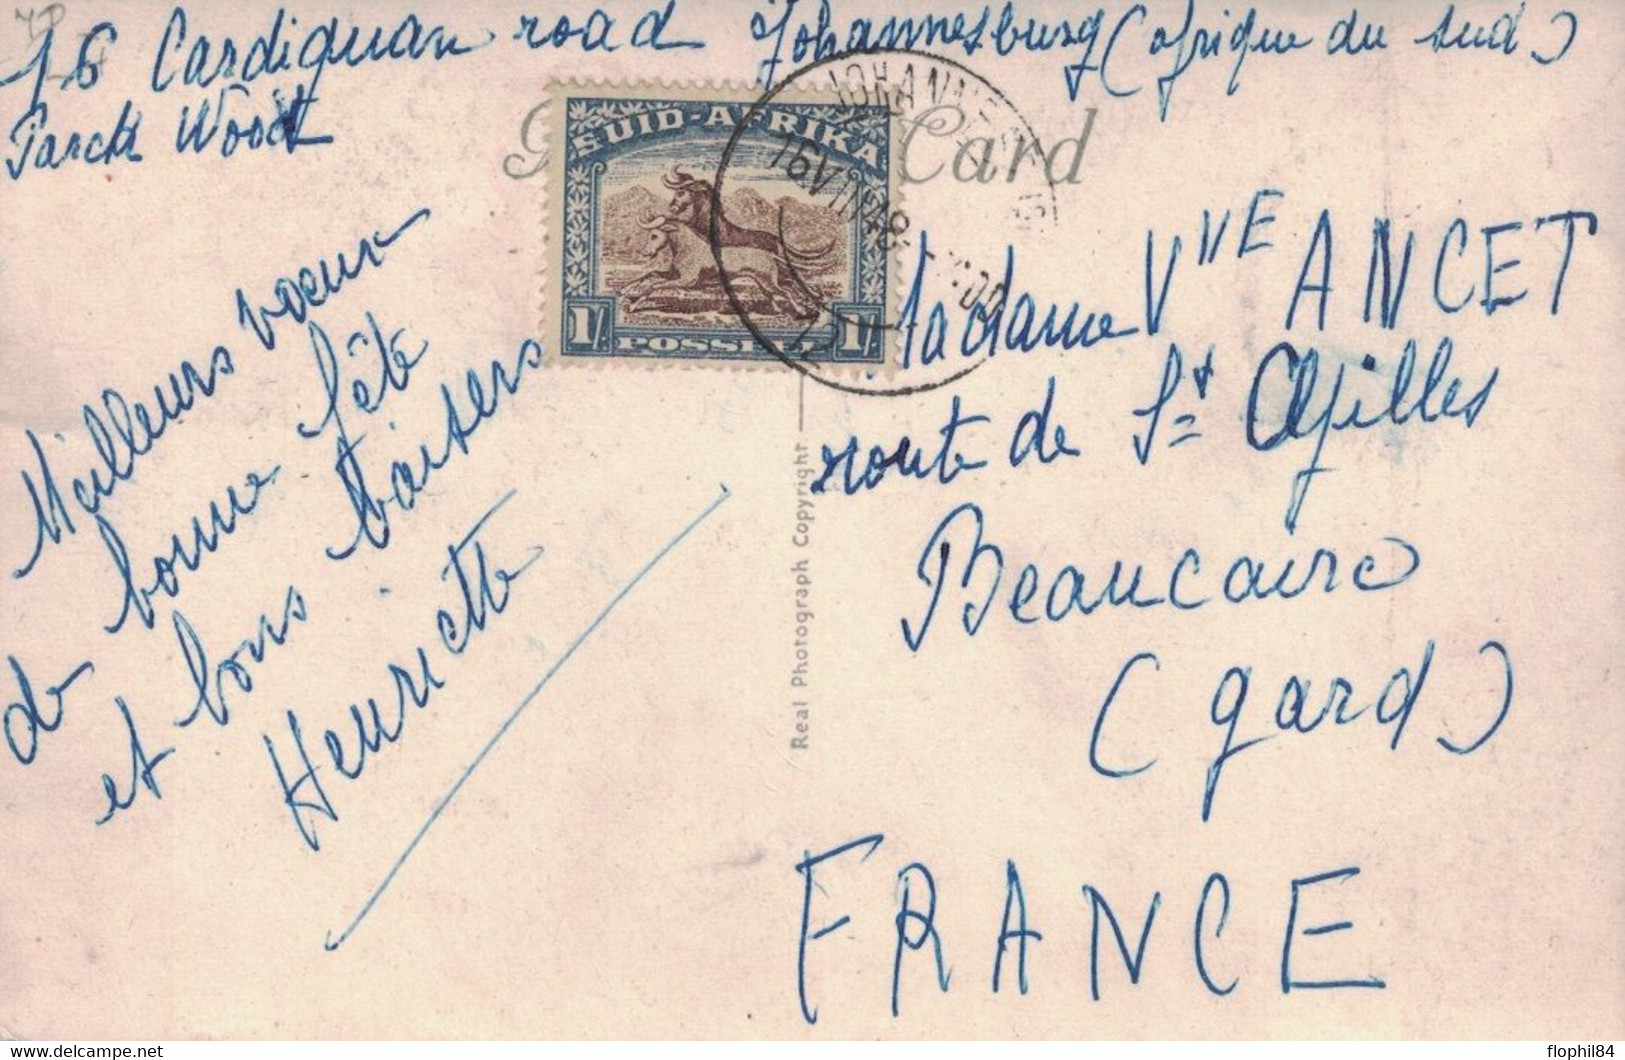 16 Cardiguan road Johannesburg (Afrique du sud)
Parck Wood
Card
SUID-AFRIKA
1/. POSSEEL 1/.
JOHANNESBURG
Meilleurs voeux
de bonne fête
et bons baisers
Henriette
Real Photograph Copyright
Madame Vve ANCET
route de St Gilles
Beaucaire
(gard)
FRANCE
flophil84